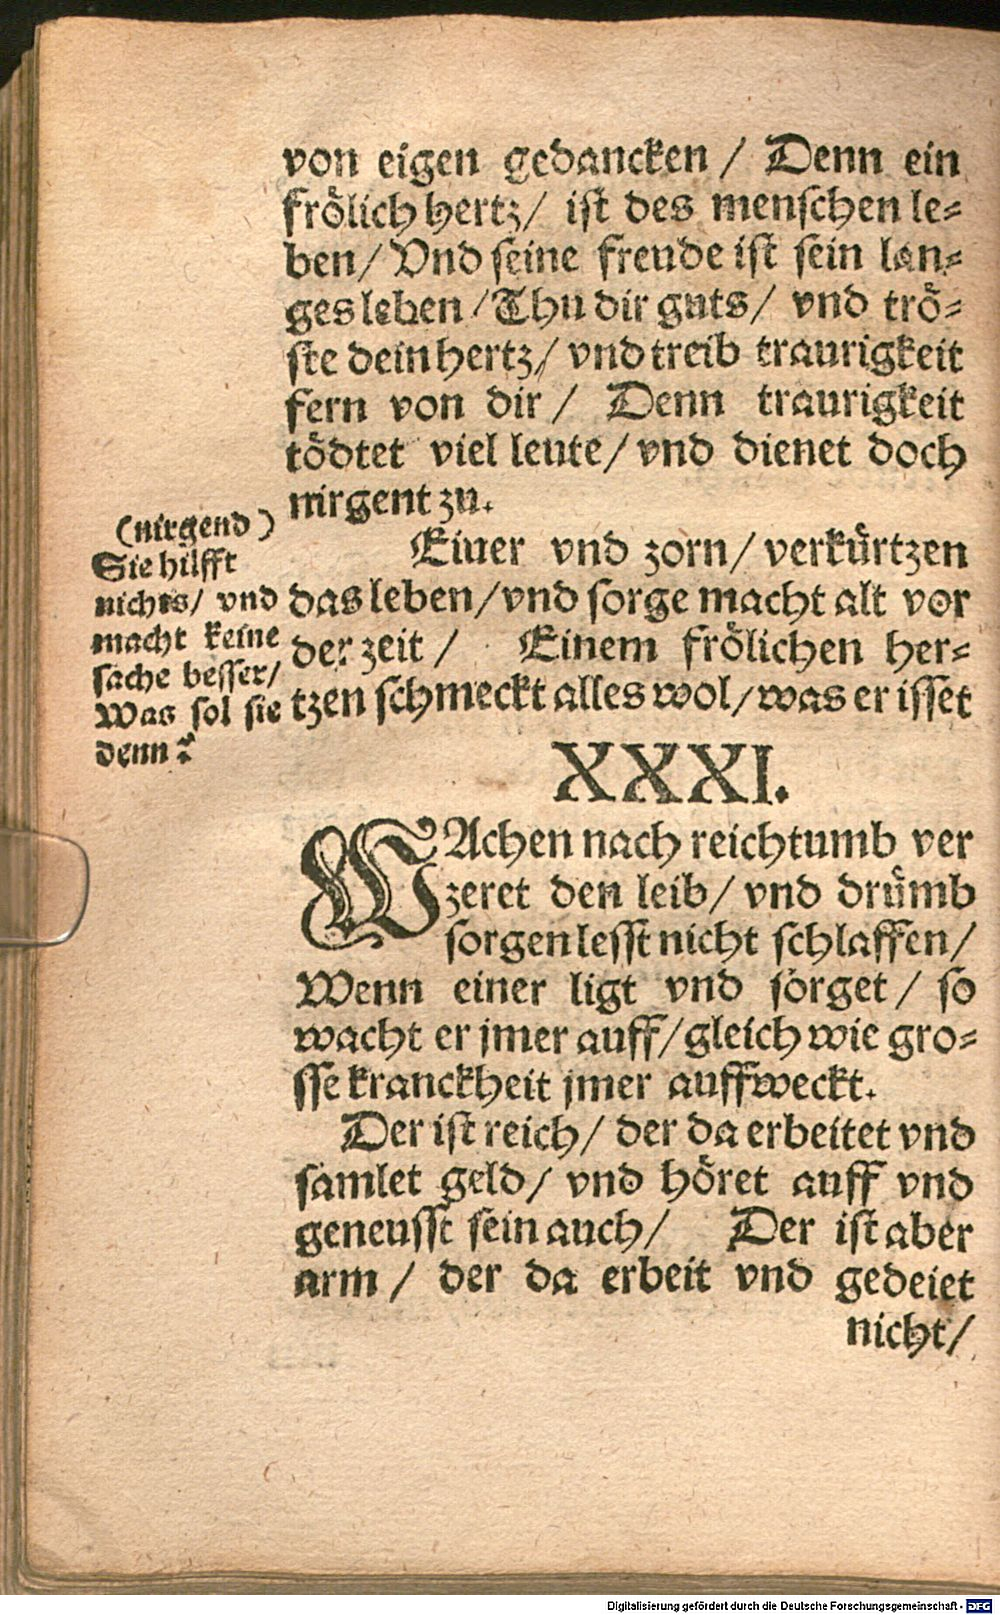 von eigen gedancken / Denn ein
frölich hertz / ist des menschen le=
ben / Vnd seine freude ist sein lan=
ges leben / Thu dir guts / vnd trö=
ste dein hertz / vnd treib traurigkeit
fern von dir / Denn traurigkeit
tödtet viel leute / vnd dienet doch
nirgent zu.
(nirgend)
Sie hilfft
nichts / vnd
macht keine
sache besser /
Was sol sie
denn?
Eiuer vnd zorn / verkürtzen
das leben / vnd sorge macht alt vor
der zeit / Einem frölichen her=
tzen schmeckt alles wol / was er isset
XXXI.
WAchen nach reichtumb ver
zeret den leib / vnd drümb
sorgen lesst nicht schlaffen /
Wenn einer ligt vnd sorget / so
wacht er jmer auff / gleich wie gro=
sse kranckheit jmer auffweckt.
Der ist reich / der da erbeitet vnd
samlet geld / vnd höret auff vnd
geneusst sein auch / Der ist aber
arm / der da erbeit vnd gedeiet
nicht /
Digitalisierung gefördert durch die Deutsche Forschungsgemeinschaft - DFG